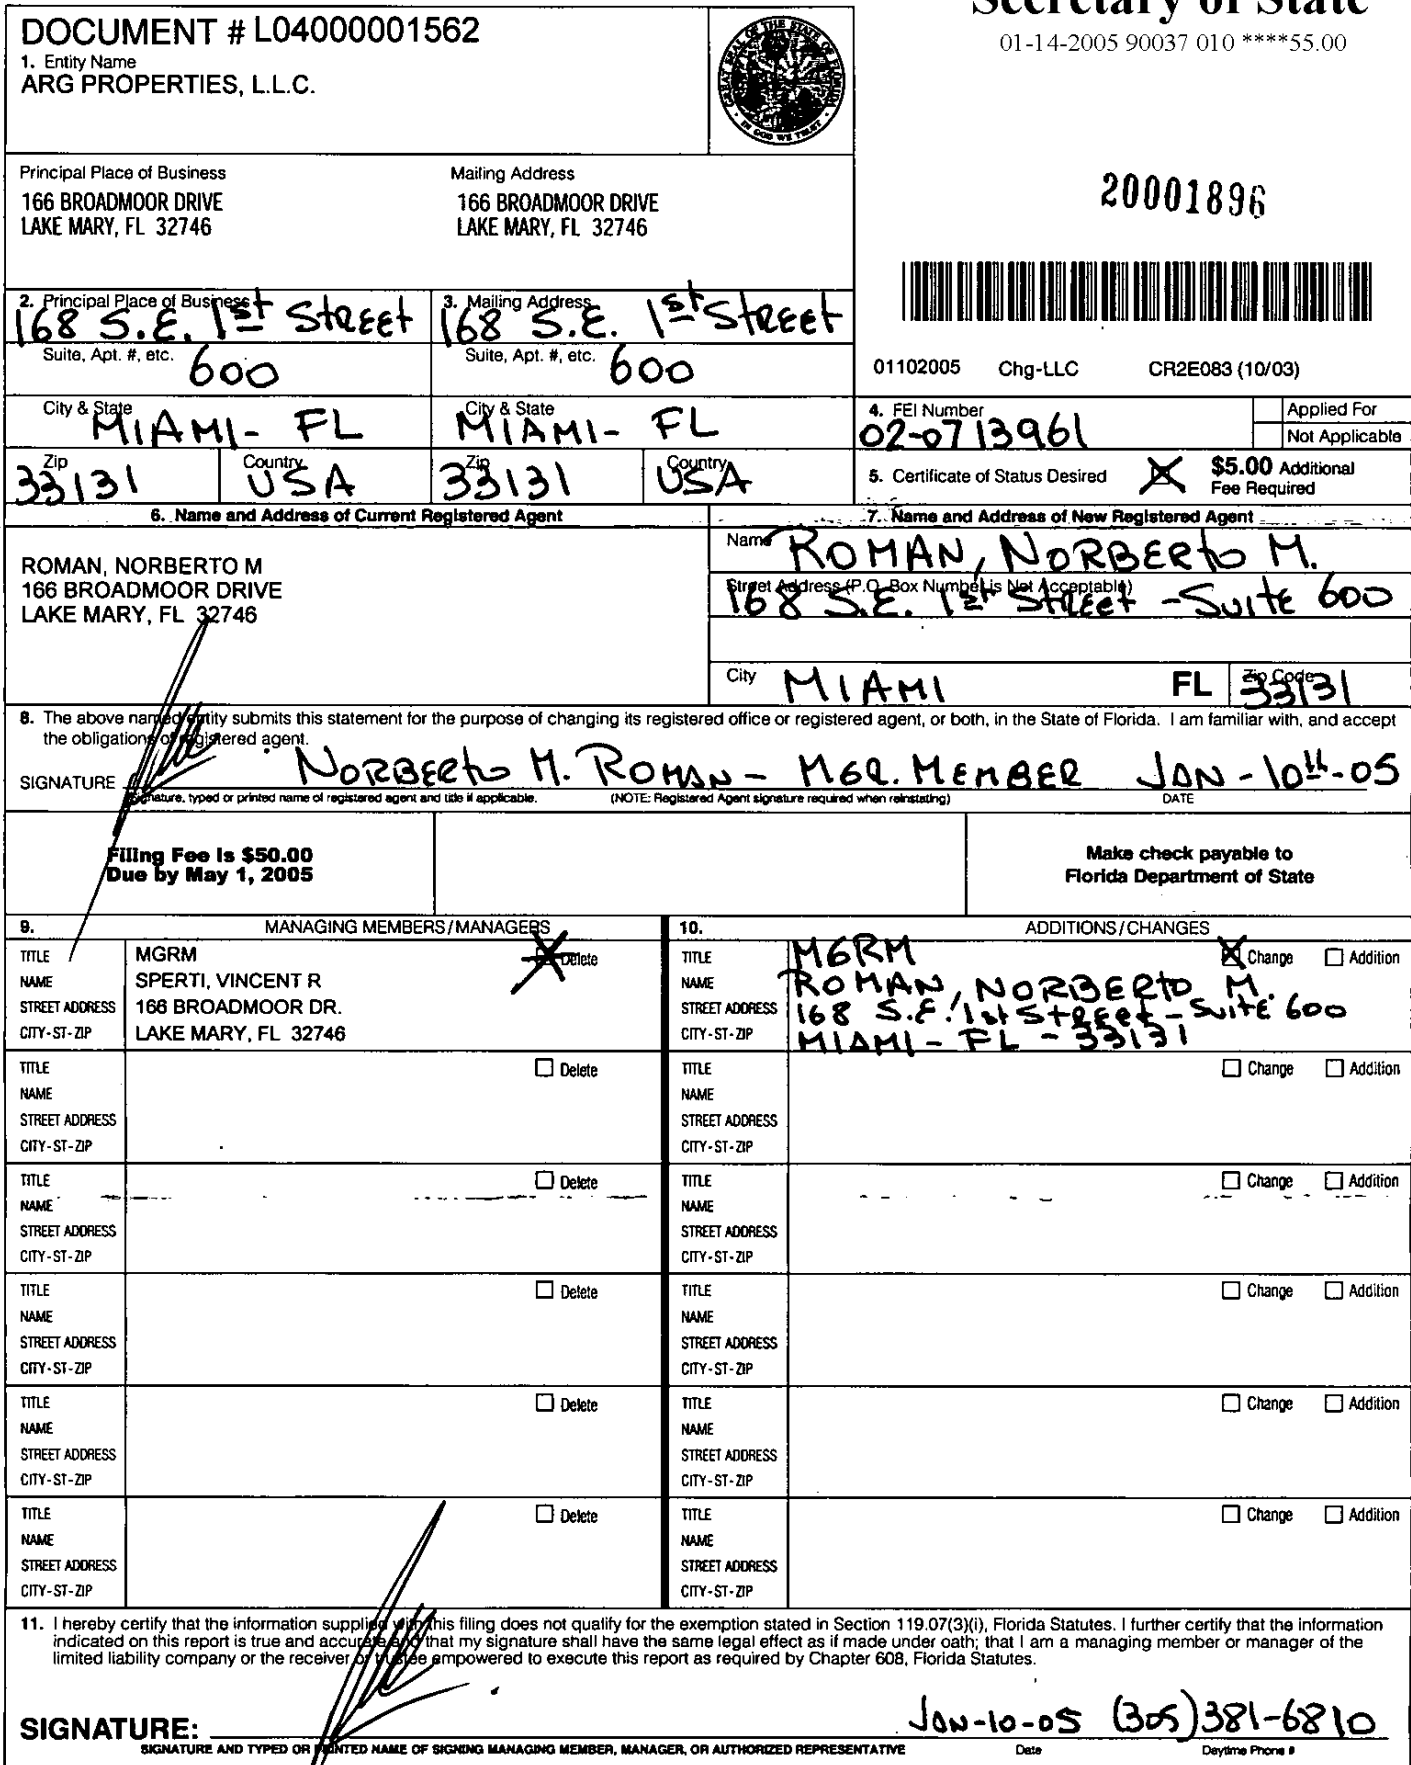 Secretary of State
01-14-2005 90037 010 ****55.00
DOCUMENT # L04000001562
1. Entity Name
ARG PROPERTIES, L.L.C.
GREAT SEAL OF THE STATE OF FLORIDA
IN GOD WE TRUST
Principal Place of Business
166 BROADMOOR DRIVE
LAKE MARY, FL 32746
Mailing Address
166 BROADMOOR DRIVE
LAKE MARY, FL 32746
20001896
2. Principal Place of Business
168 S.E. 1st Street
Suite, Apt. #, etc.
600
City & State
MIAMI - FL
Zip
33131
Country
USA
3. Mailing Address
168 S.E. 1st Street
Suite, Apt. #, etc.
600
City & State
MIAMI - FL
Zip
33131
Country
USA
01102005 Chg-LLC CR2E083 (10/03)
4. FEI Number
02-0713961
Applied For
Not Applicable
5. Certificate of Status Desired
X
$5.00 Additional
Fee Required
6. Name and Address of Current Registered Agent
ROMAN, NORBERTO M
166 BROADMOOR DRIVE
LAKE MARY, FL 32746
7. Name and Address of New Registered Agent
Name
ROMAN, NORBERTO M.
Street Address (P.O. Box Number is Not Acceptable)
168 S.E. 1st Street - Suite 600
City
MIAMI
FL
Zip Code
33131
8. The above named entity submits this statement for the purpose of changing its registered office or registered agent, or both, in the State of Florida. I am familiar with, and accept
the obligations of registered agent.
SIGNATURE
NORBERTO M. ROMAN - MGR. MEMBER JAN - 10th - 05
Signature, typed or printed name of registered agent and title if applicable. (NOTE: Registered Agent signature required when reinstating) DATE
Filing Fee is $50.00
Due by May 1, 2005
Make check payable to
Florida Department of State
9. MANAGING MEMBERS/MANAGERS
TITLE MGRM X Delete
NAME SPERTI, VINCENT R
STREET ADDRESS 166 BROADMOOR DR.
CITY-ST-ZIP LAKE MARY, FL 32746
10. ADDITIONS/CHANGES
TITLE MGRM X Change Addition
NAME ROMAN, NORBERTO M.
STREET ADDRESS 168 S.E. 1st Street - Suite 600
CITY-ST-ZIP MIAMI - FL - 33131
TITLE Delete
NAME
STREET ADDRESS
CITY-ST-ZIP
TITLE Change Addition
NAME
STREET ADDRESS
CITY-ST-ZIP
TITLE Delete
NAME
STREET ADDRESS
CITY-ST-ZIP
TITLE Change Addition
NAME
STREET ADDRESS
CITY-ST-ZIP
TITLE Delete
NAME
STREET ADDRESS
CITY-ST-ZIP
TITLE Change Addition
NAME
STREET ADDRESS
CITY-ST-ZIP
TITLE Delete
NAME
STREET ADDRESS
CITY-ST-ZIP
TITLE Change Addition
NAME
STREET ADDRESS
CITY-ST-ZIP
TITLE Delete
NAME
STREET ADDRESS
CITY-ST-ZIP
TITLE Change Addition
NAME
STREET ADDRESS
CITY-ST-ZIP
11. I hereby certify that the information supplied with this filing does not qualify for the exemption stated in Section 119.07(3)(i), Florida Statutes. I further certify that the information
indicated on this report is true and accurate and that my signature shall have the same legal effect as if made under oath; that I am a managing member or manager of the
limited liability company or the receiver or trustee empowered to execute this report as required by Chapter 608, Florida Statutes.
SIGNATURE:
JAN-10-05 (305)381-6810
SIGNATURE AND TYPED OR PRINTED NAME OF SIGNING MANAGING MEMBER, MANAGER, OR AUTHORIZED REPRESENTATIVE Date Daytime Phone #